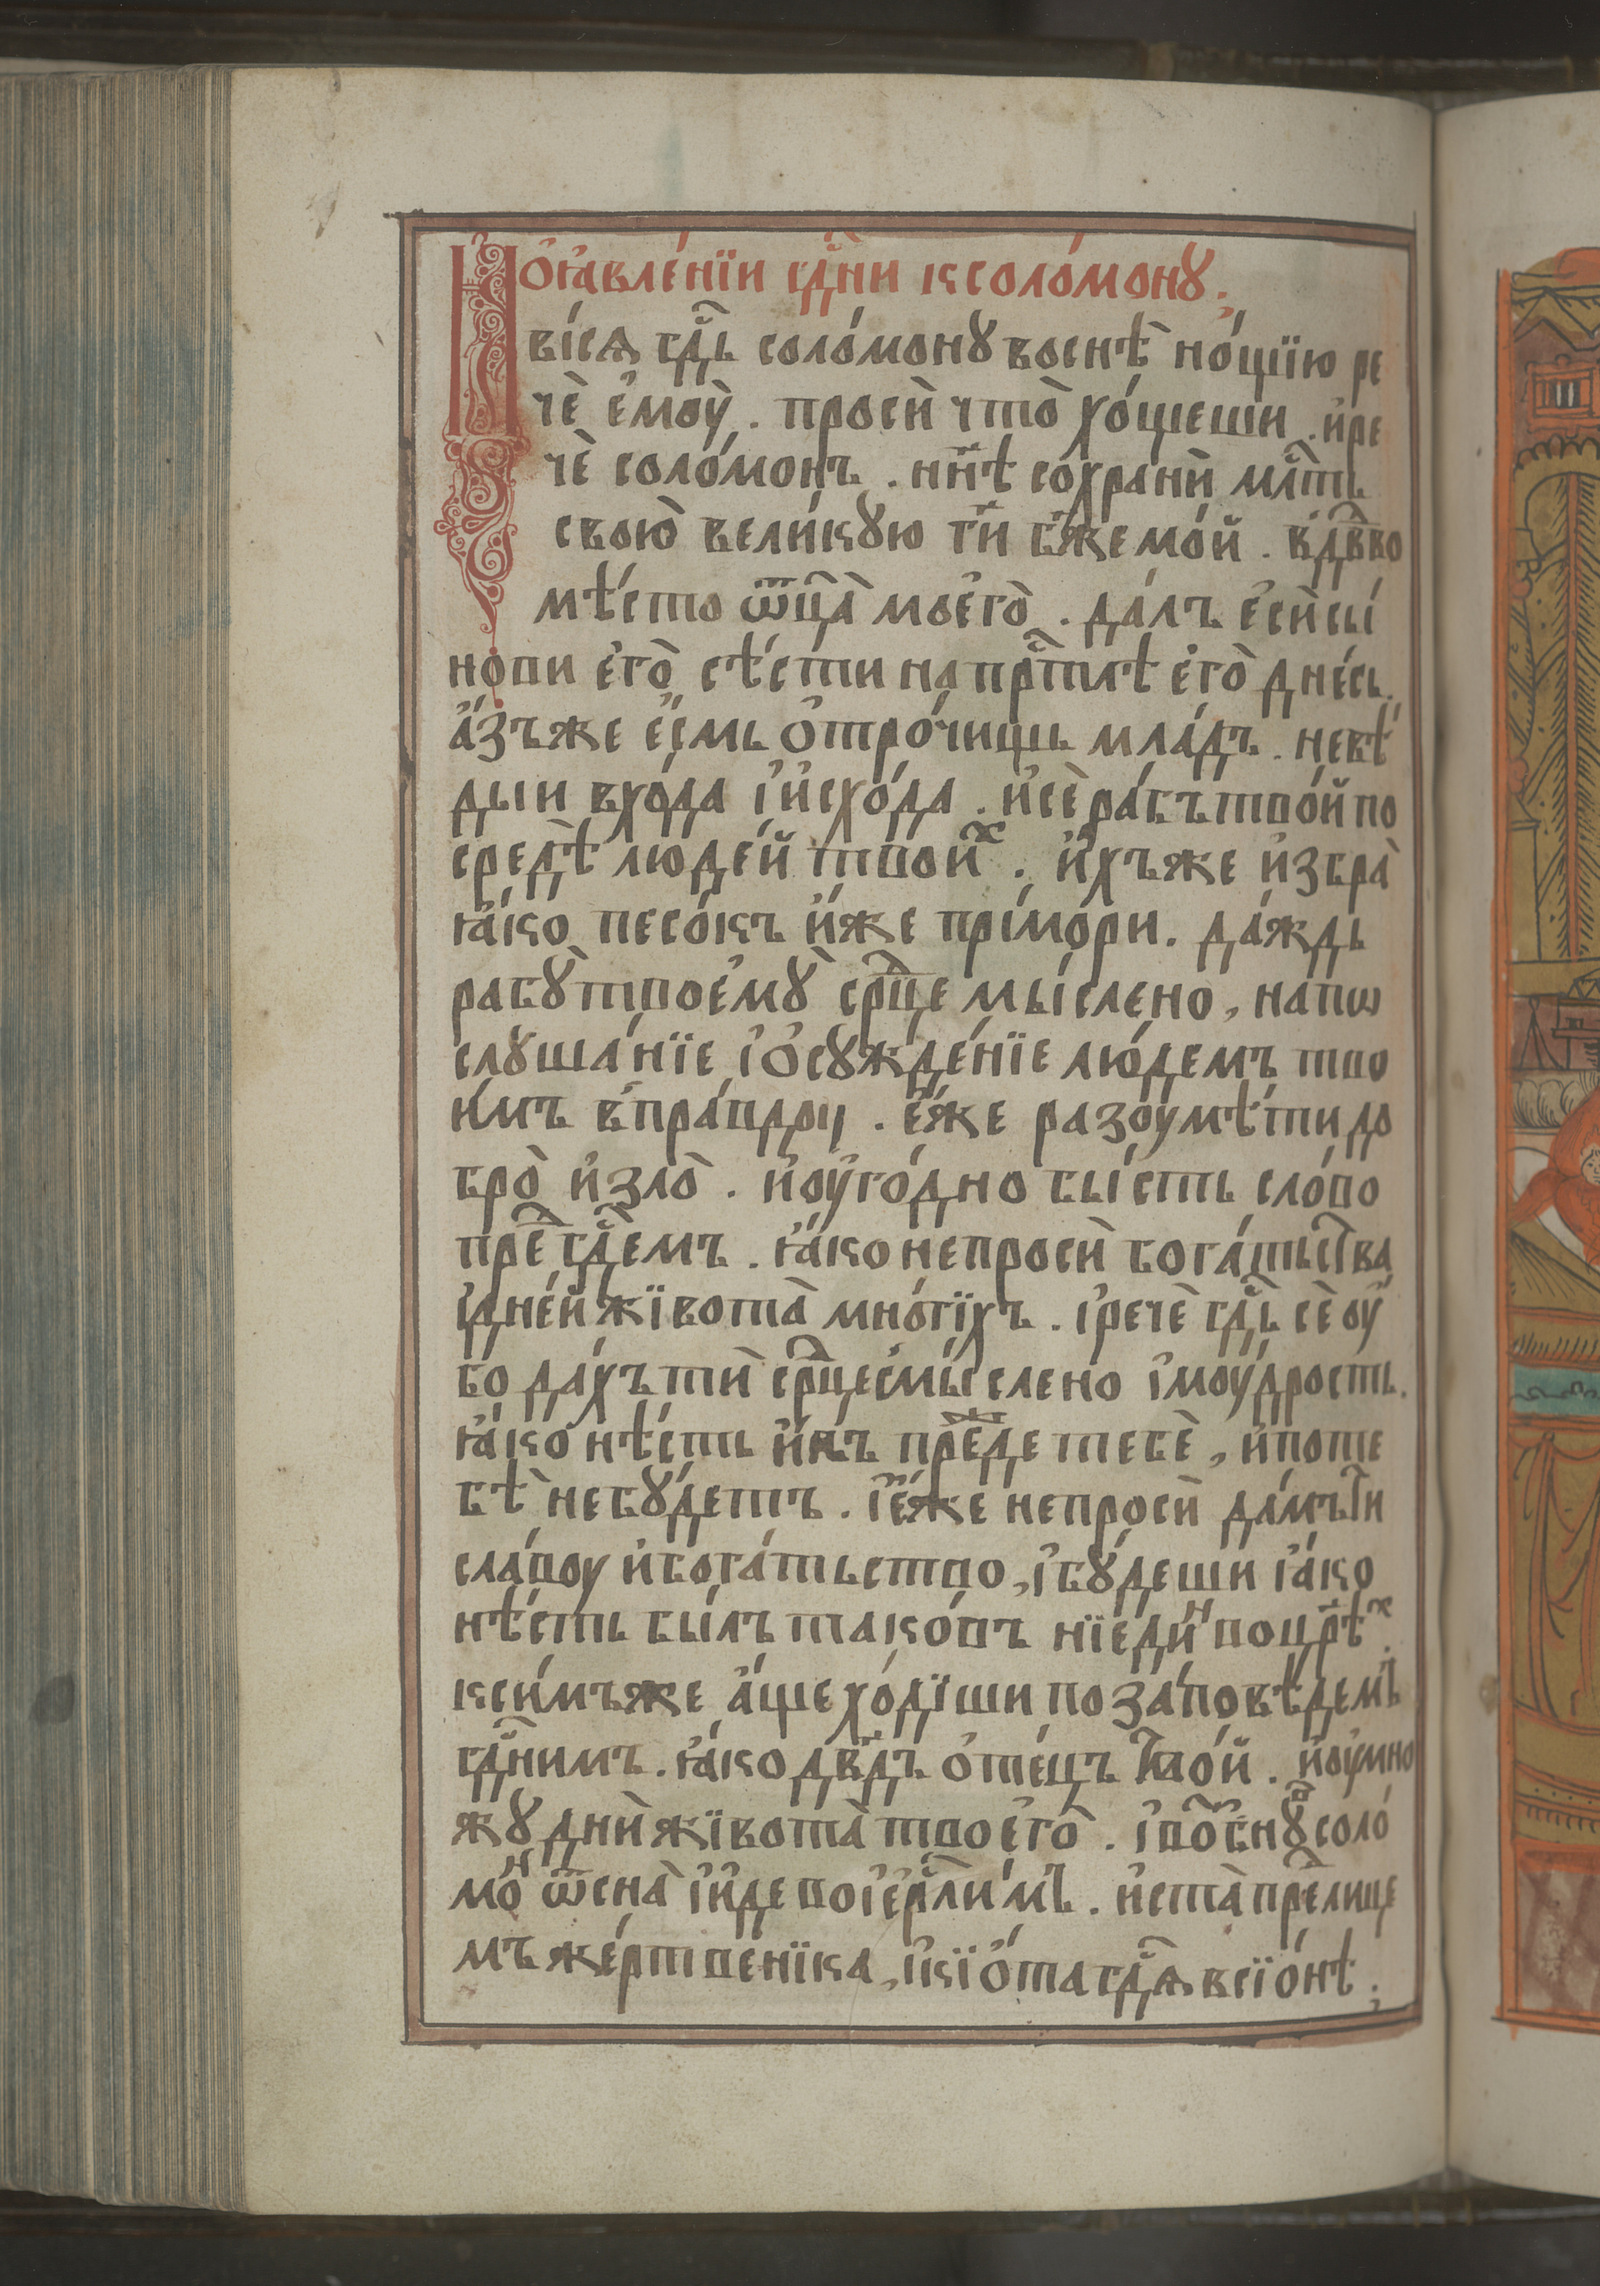 Ѡ҆ ꙗ҆вле́нїи гдⷭ҇ни к соло́монꙋ.
ꙗві́сѧ гдⷭ҇ь соло́монꙋ воснѣ̀ но́щїю ре
чѐ є҆моу̀. просѝ что̀ хо́щеши. и҆ре
чѐ соло́монъ. нн҃ѣ со́хранѝ млⷭ҇ть
свою̀ вели́кꙋю гⷭ҇и бж҃е мо́й. в̾ дв҃дво
мѣ́сто ѿц҃а̀ моє҆го̀. да́лъ є҆сѝ сы́
нови є҆го̀ сѣ́сти на прⷭ҇тлѣ є҆го̀ дне́сь.
а҆́зъже є҆́смь о҆тро́чищь мла́дъ. невѣ́
дыи вхо́да і҆ и҆схо́да. и҆сѐ ра́бъ тво́й по
средѣ̀ люде́й твои́ⷯ. и҆́хъже и҆збра̀
ꙗ҆́ко песо́къ и҆́же прі мо́ри. да́ждь
рабꙋ̀ твоє҆мꙋ̀ срⷣце мы́слено, на пѡ
слꙋша́нїе і҆ о҆сꙋжде́нїе лю́демъ тво
и́мъ в̾ пра́вдоу. є҆́же разоумѣ́ти до
бро̀ и҆ зло̀. и҆ оу҆го́дно бы́сть сло́во
преⷣ гдⷭ҇емъ. ꙗ҆́ко непросѝ бога́тьства
і҆ дне́й жївота̀ мно́гїхъ. і҆ речѐ гдⷭ҇ь сѐ оу҆
бо да́хъ тѝ срⷣце смы́слено і҆ моу́дрость.
ꙗ҆́ко нѣ́сть и҆́нъ преⷤде тебѐ, и҆ по те
бѣ̀ небꙋ́детъ. і҆ є҆́же непросѝ да́мъ ти
сла́воу и҆ бога́тьство, і҆ бꙋ́деши ꙗ҆́ко
нѣ́сть бы́лъ тако́въ нїеди́ⷩ во цр҃ѣⷯ.
к си́мъже а҆́ще хо́діши по за́повѣдемъ
гдⷭ҇нимъ. ꙗ҆́ко дв҃дъ о҆те́цъ тво́й. и҆ оу҆мно
жꙋ днѝ жївота̀ твоє҆го̀. і҆ во́збнꙋⷡ соло
мо́ⷩ ѿ сна̀ і҆ и҆́де во і҆є҆рⷭ҇ли́мъ. и҆ ста̀ прⷣ лице
мъ же́ртвеніка, і҆ кїо҆́та гдⷭ҇ѧ в сїо́нѣ.